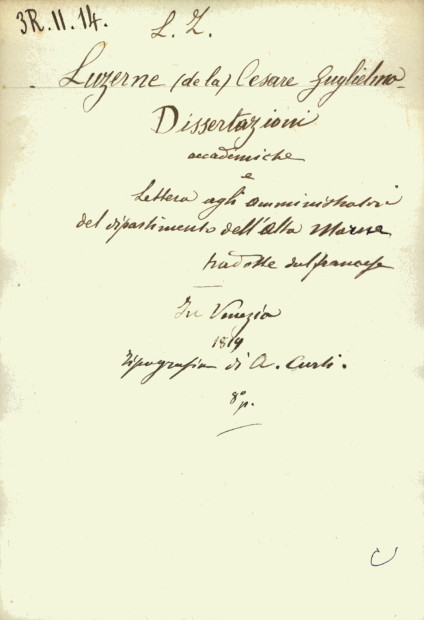 3R.II.14.
L. Z.
Luzerne (de la) Cesare Guglielmo
Dissertazioni
accademiche
e
Lettera agli amministratori
del dipartimento dell'Alta Marna
tradotte dal francese
In Venezia
1819
tipografia di A. Curti.
8º p.